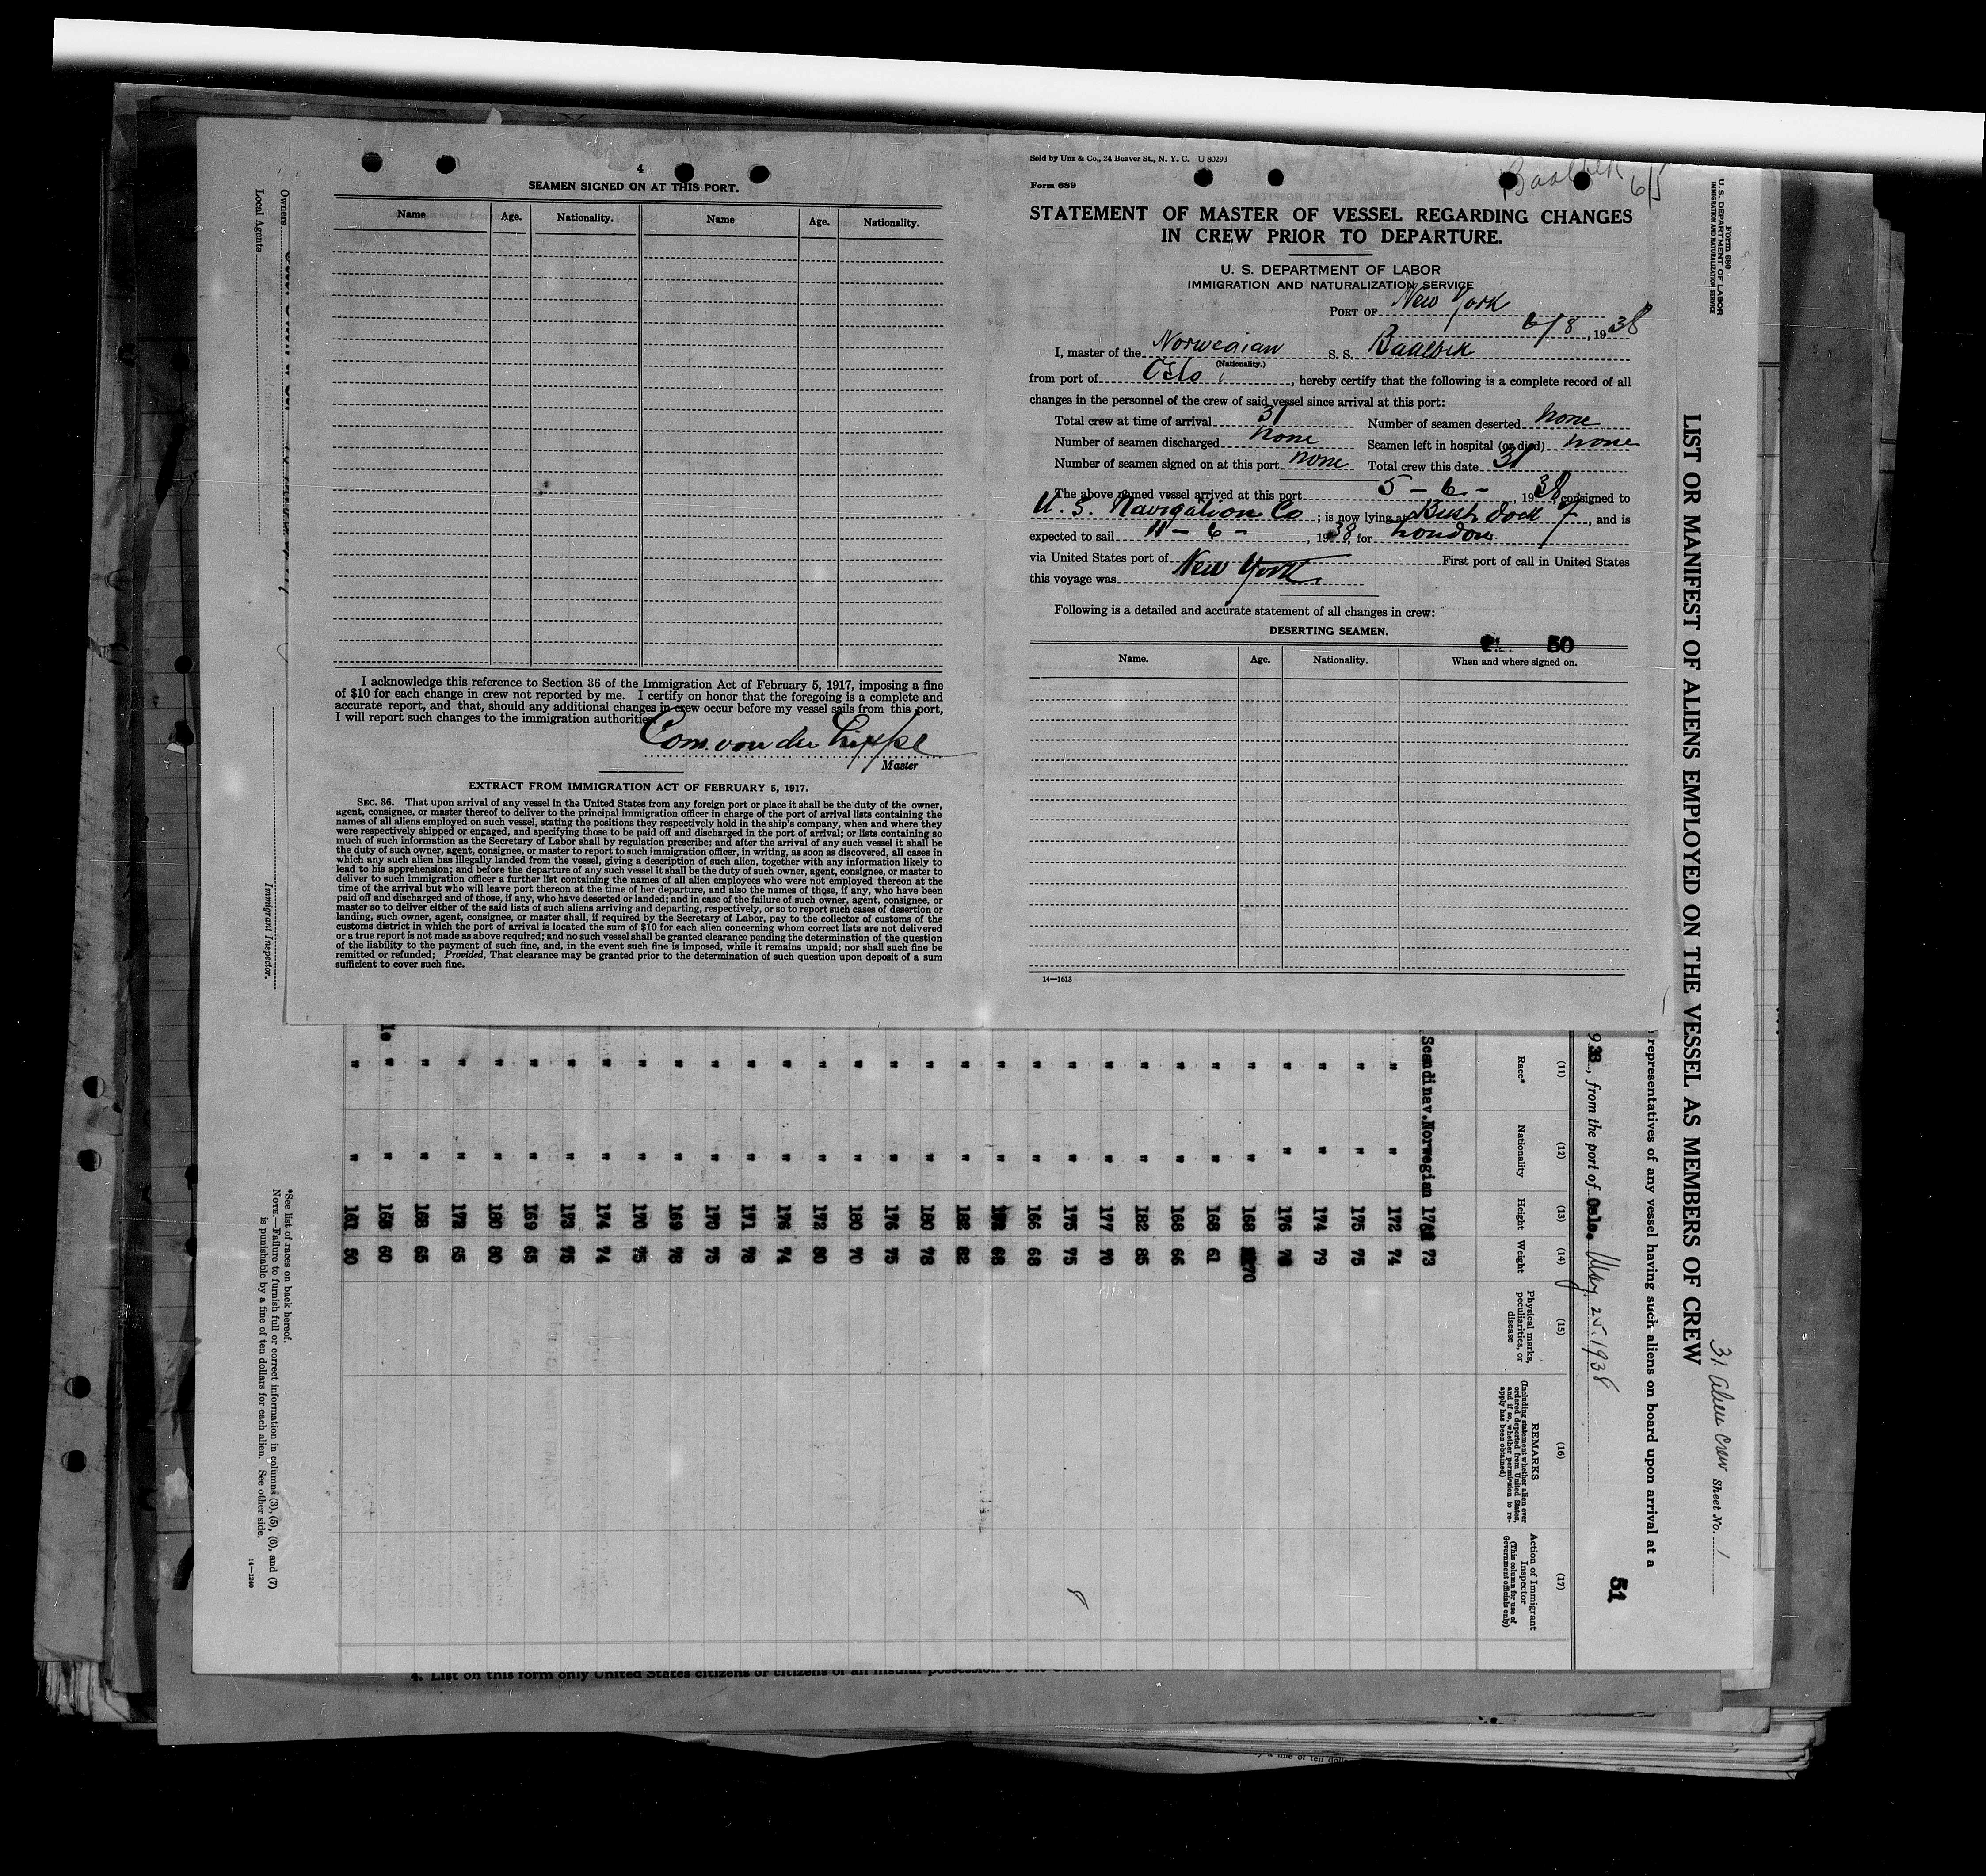 4
SEAMEN SIGNED ON AT THIS PORT.
Name Age. Nationality. Name Age. Nationality.
I acknowledge this reference to Section 36 of the Immigration Act of February 5, 1917, imposing a fine
of $10 for each change in crew not reported by me. I certify on honor that the foregoing is a complete and
accurate report, and that, should any additional changes in crew occur before my vessel sails from this port,
I will report such changes to the immigration authorities.
Com. von der Lippe
Master
EXTRACT FROM IMMIGRATION ACT OF FEBRUARY 5, 1917.
SEC. 36. That upon arrival of any vessel in the United States from any foreign port or place it shall be the duty of the owner,
agent, consignee, or master thereof to deliver to the principal immigration officer in charge of the port of arrival lists containing the
names of all aliens employed on such vessel, stating the positions they respectively hold in the ship's company, when and where they
were respectively shipped or engaged, and specifying those to be paid off and discharged in the port of arrival; or lists containing so
much of such information as the Secretary of Labor shall by regulation prescribe; and after the arrival of any such vessel it shall be
the duty of such owner, agent, consignee, or master to report to such immigration officer, in writing, as soon as discovered, all cases in
which any such alien has illegally landed from the vessel, giving a description of such alien, together with any information likely to
lead to his apprehension; and before the departure of any such vessel it shall be the duty of such owner, agent, consignee, or master to
deliver to such immigration officer a further list containing the names of all alien employees who were not employed thereon at the
time of the arrival but who will leave port thereon at the time of her departure, and also the names of those, if any, who have been
paid off and discharged and of those, if any, who have deserted or landed; and in case of the failure of such owner, agent, consignee, or
master so to deliver either of the said lists of such aliens arriving and departing, respectively, or so to report such cases of desertion or
landing, such owner, agent, consignee, or master shall, if required by the Secretary of Labor, pay to the collector of customs of the
customs district in which the port of arrival is located the sum of $10 for each alien concerning whom correct lists are not delivered
or a true report is not made as above required; and no such vessel shall be granted clearance pending the determination of the question
of the liability to the payment of such fine, and, in the event such fine is imposed, while it remains unpaid; nor shall such fine be
remitted or refunded; Provided, That clearance may be granted prior to the determination of such question upon deposit of a sum
sufficient to cover such fine.
Sold by Unz & Co., 24 Beaver St., N. Y. C. U 80293
Baalbek 6/5
Form 689
STATEMENT OF MASTER OF VESSEL REGARDING CHANGES
IN CREW PRIOR TO DEPARTURE.
U. S. DEPARTMENT OF LABOR
IMMIGRATION AND NATURALIZATION SERVICE
PORT OF New York
6/8, 1938
I, master of the Norwegian S. S. Baalbek
(Nationality.)
from port of Oslo, hereby certify that the following is a complete record of all
changes in the personnel of the crew of said vessel since arrival at this port:
Total crew at time of arrival 31 Number of seamen deserted none
Number of seamen discharged none Seamen left in hospital (or died) none
Number of seamen signed on at this port none Total crew this date 31
The above named vessel arrived at this port 5 - 6 -, 1938, consigned to
U. S. Navigation Co; is now lying at Bush Dock 7, and is
expected to sail 11 - 6 -, 1938, for London
via United States port of New York First port of call in United States
this voyage was
Following is a detailed and accurate statement of all changes in crew:
DESERTING SEAMEN.
50
Name. Age. Nationality. When and where signed on.
14—1613
Form 680
U. S. DEPARTMENT OF LABOR
IMMIGRATION AND NATURALIZATION SERVICE
31 alien crew Sheet No. 1
LIST OR MANIFEST OF ALIENS EMPLOYED ON THE VESSEL AS MEMBERS OF CREW
representatives of any vessel having such aliens on board upon arrival at a
51
938, from the port of Oslo. May 25. 1938
(11) (12) (13) (14) (15) (16) (17)
Race* Nationality Height Weight Physical marks, peculiarities, or disease REMARKS (Including statement whether alien ever ordered deported from United States, and if so, whether permission to reapply has been obtained) Action of Immigrant Inspector (This column for use of Government officials only)
Scandinav. Norwegian 73
" " 172 74
" " 175 75
" " 174 79
" " 176
" " 168 70
" " 168 61
" " 168 66
" " 182 85
" " 177 70
" " 175 75
" " 166 68
" " 68
" " 182 82
" " 180 78
" " 176 75
" " 180 70
" " 172 80
" " 176 74
" " 171 78
" " 170 75
" " 169 78
" " 170 75
" " 174 74
" " 173 75
" " 169 65
" " 180 80
" " 172 65
" " 168 65
" " 60
" "
*See list of races on back hereof.
NOTE.—Failure to furnish full or correct information in columns (3), (5), (6), and (7)
is punishable by a fine of ten dollars for each alien. See other side.
14—1240
Owners
Local Agents
Immigrant Inspector.
4. List on this form only United States citizens or citizens of an insular possession of the United